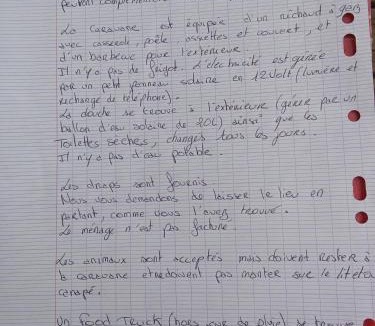 peuvent
La caravane est équipée d'un réchaud à gaz
avec casserole, poêle, assiettes et couvert, et
d'un barbecue pour l'extérieur.
Il n'y a pas de frigot. L'électricité est gérée
par un petit panneau solaire en 12 volt (lumière et
rechange de téléphone).
La douche se trouve à l'extérieure (gérée par un
ballon d'eau solaire de 20L) ainsi que les
Toilettes sèches, changés tous les jours.
Il n'y a pas d'eau potable.
Les draps sont fournis.
Nous vous demandons de laisser le lieu en
partant, comme vous l'avez trouvé.
Le ménage n'est pas facturé.
Les animaux sont acceptés mais doivent rester à
la caravane et ne doivent pas monter sur le lit et
canapé.
Un food Truck (hors